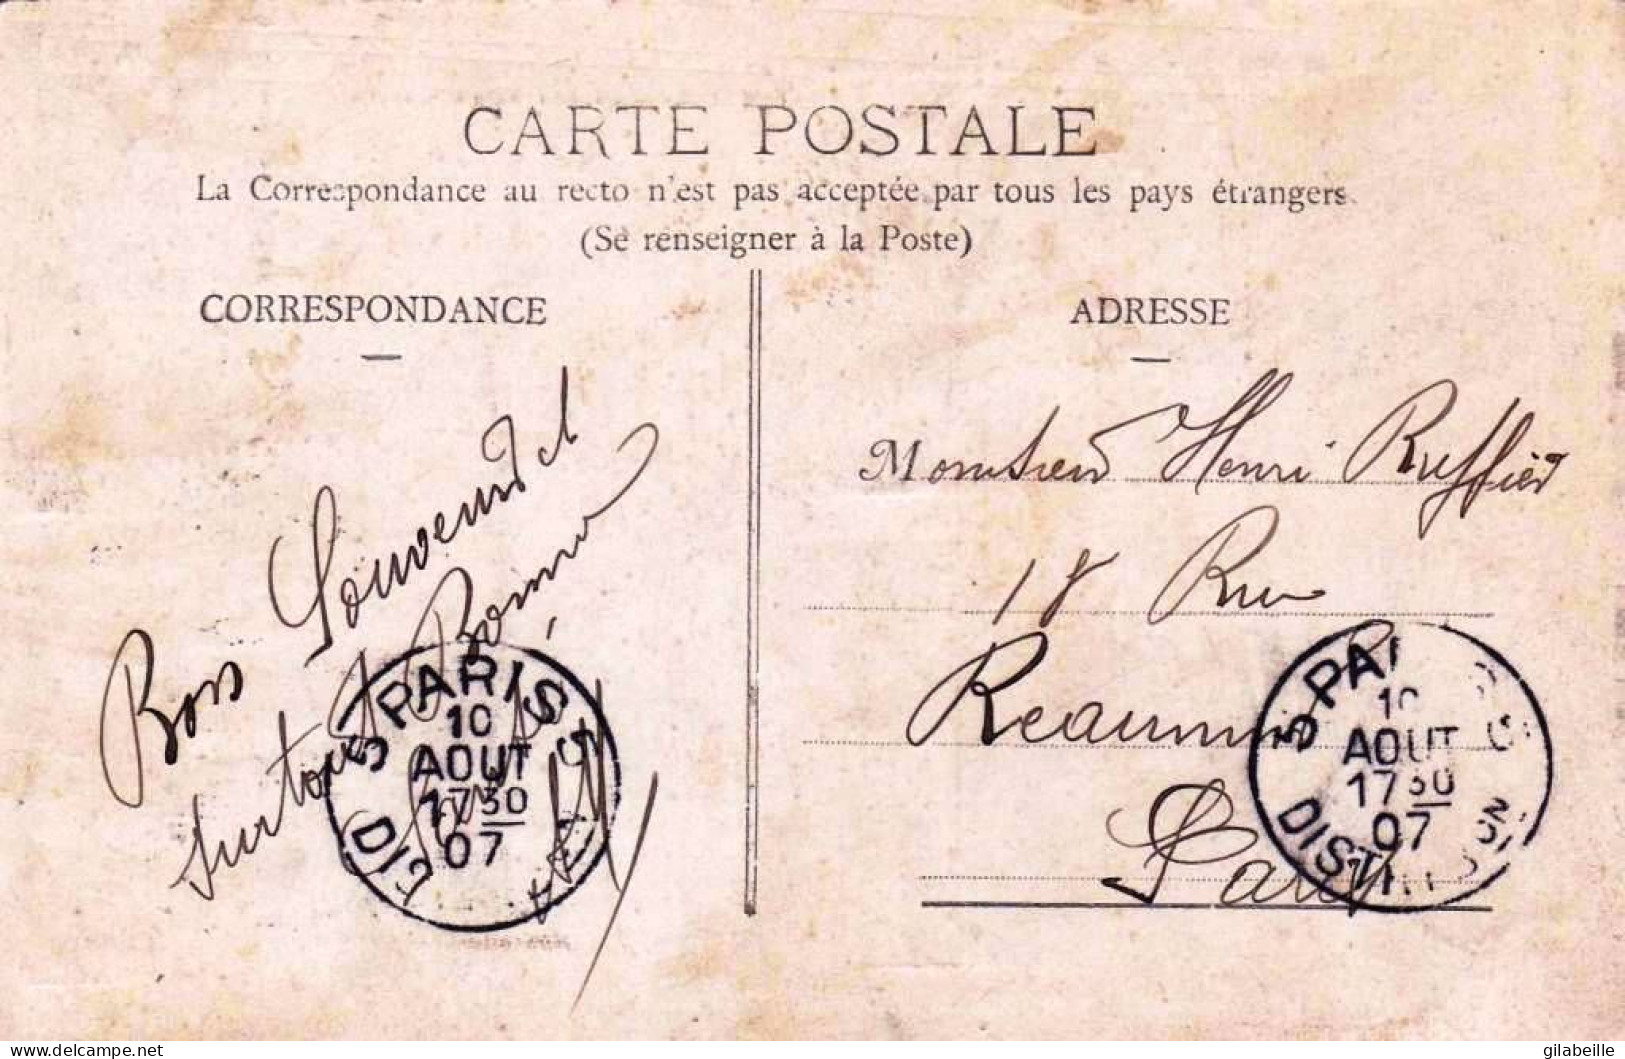 CARTE POSTALE
La Correspondance au recto n'est pas acceptée par tous les pays étrangers.
(Se renseigner à la Poste)
CORRESPONDANCE
Bon Souvenir et
surtout Bonne
Santé
PARIS
10
AOUT
17 30
07
ADRESSE
Monsieur Henri Ruffier
18 Rue
Reaumur
Paris
PA
10
AOUT
17 30
07
DISTRI
delcampe.net
gilabeille